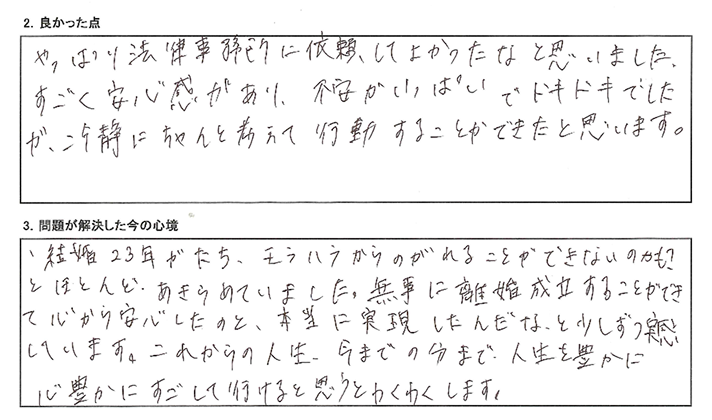 2. 良かった点
やっぱり法律事務所に依頼してよかったなと思いました、
すごく安心感があり、不安がいっぱいでドキドキでした
が、冷静にちゃんと考えて行動することができたと思います。
3. 問題が解決した今の心境
結婚23年がたち、モラハラからのがれることができないのかも?
とほとんど、あきらめていました。無事に離婚成立することができ
て心から安心したのと、本当に実現したんだな、と少しずつ実感
しています。これからの人生、今までの分まで、人生を豊かに
心豊かにすごして行けると思うとわくわくします。